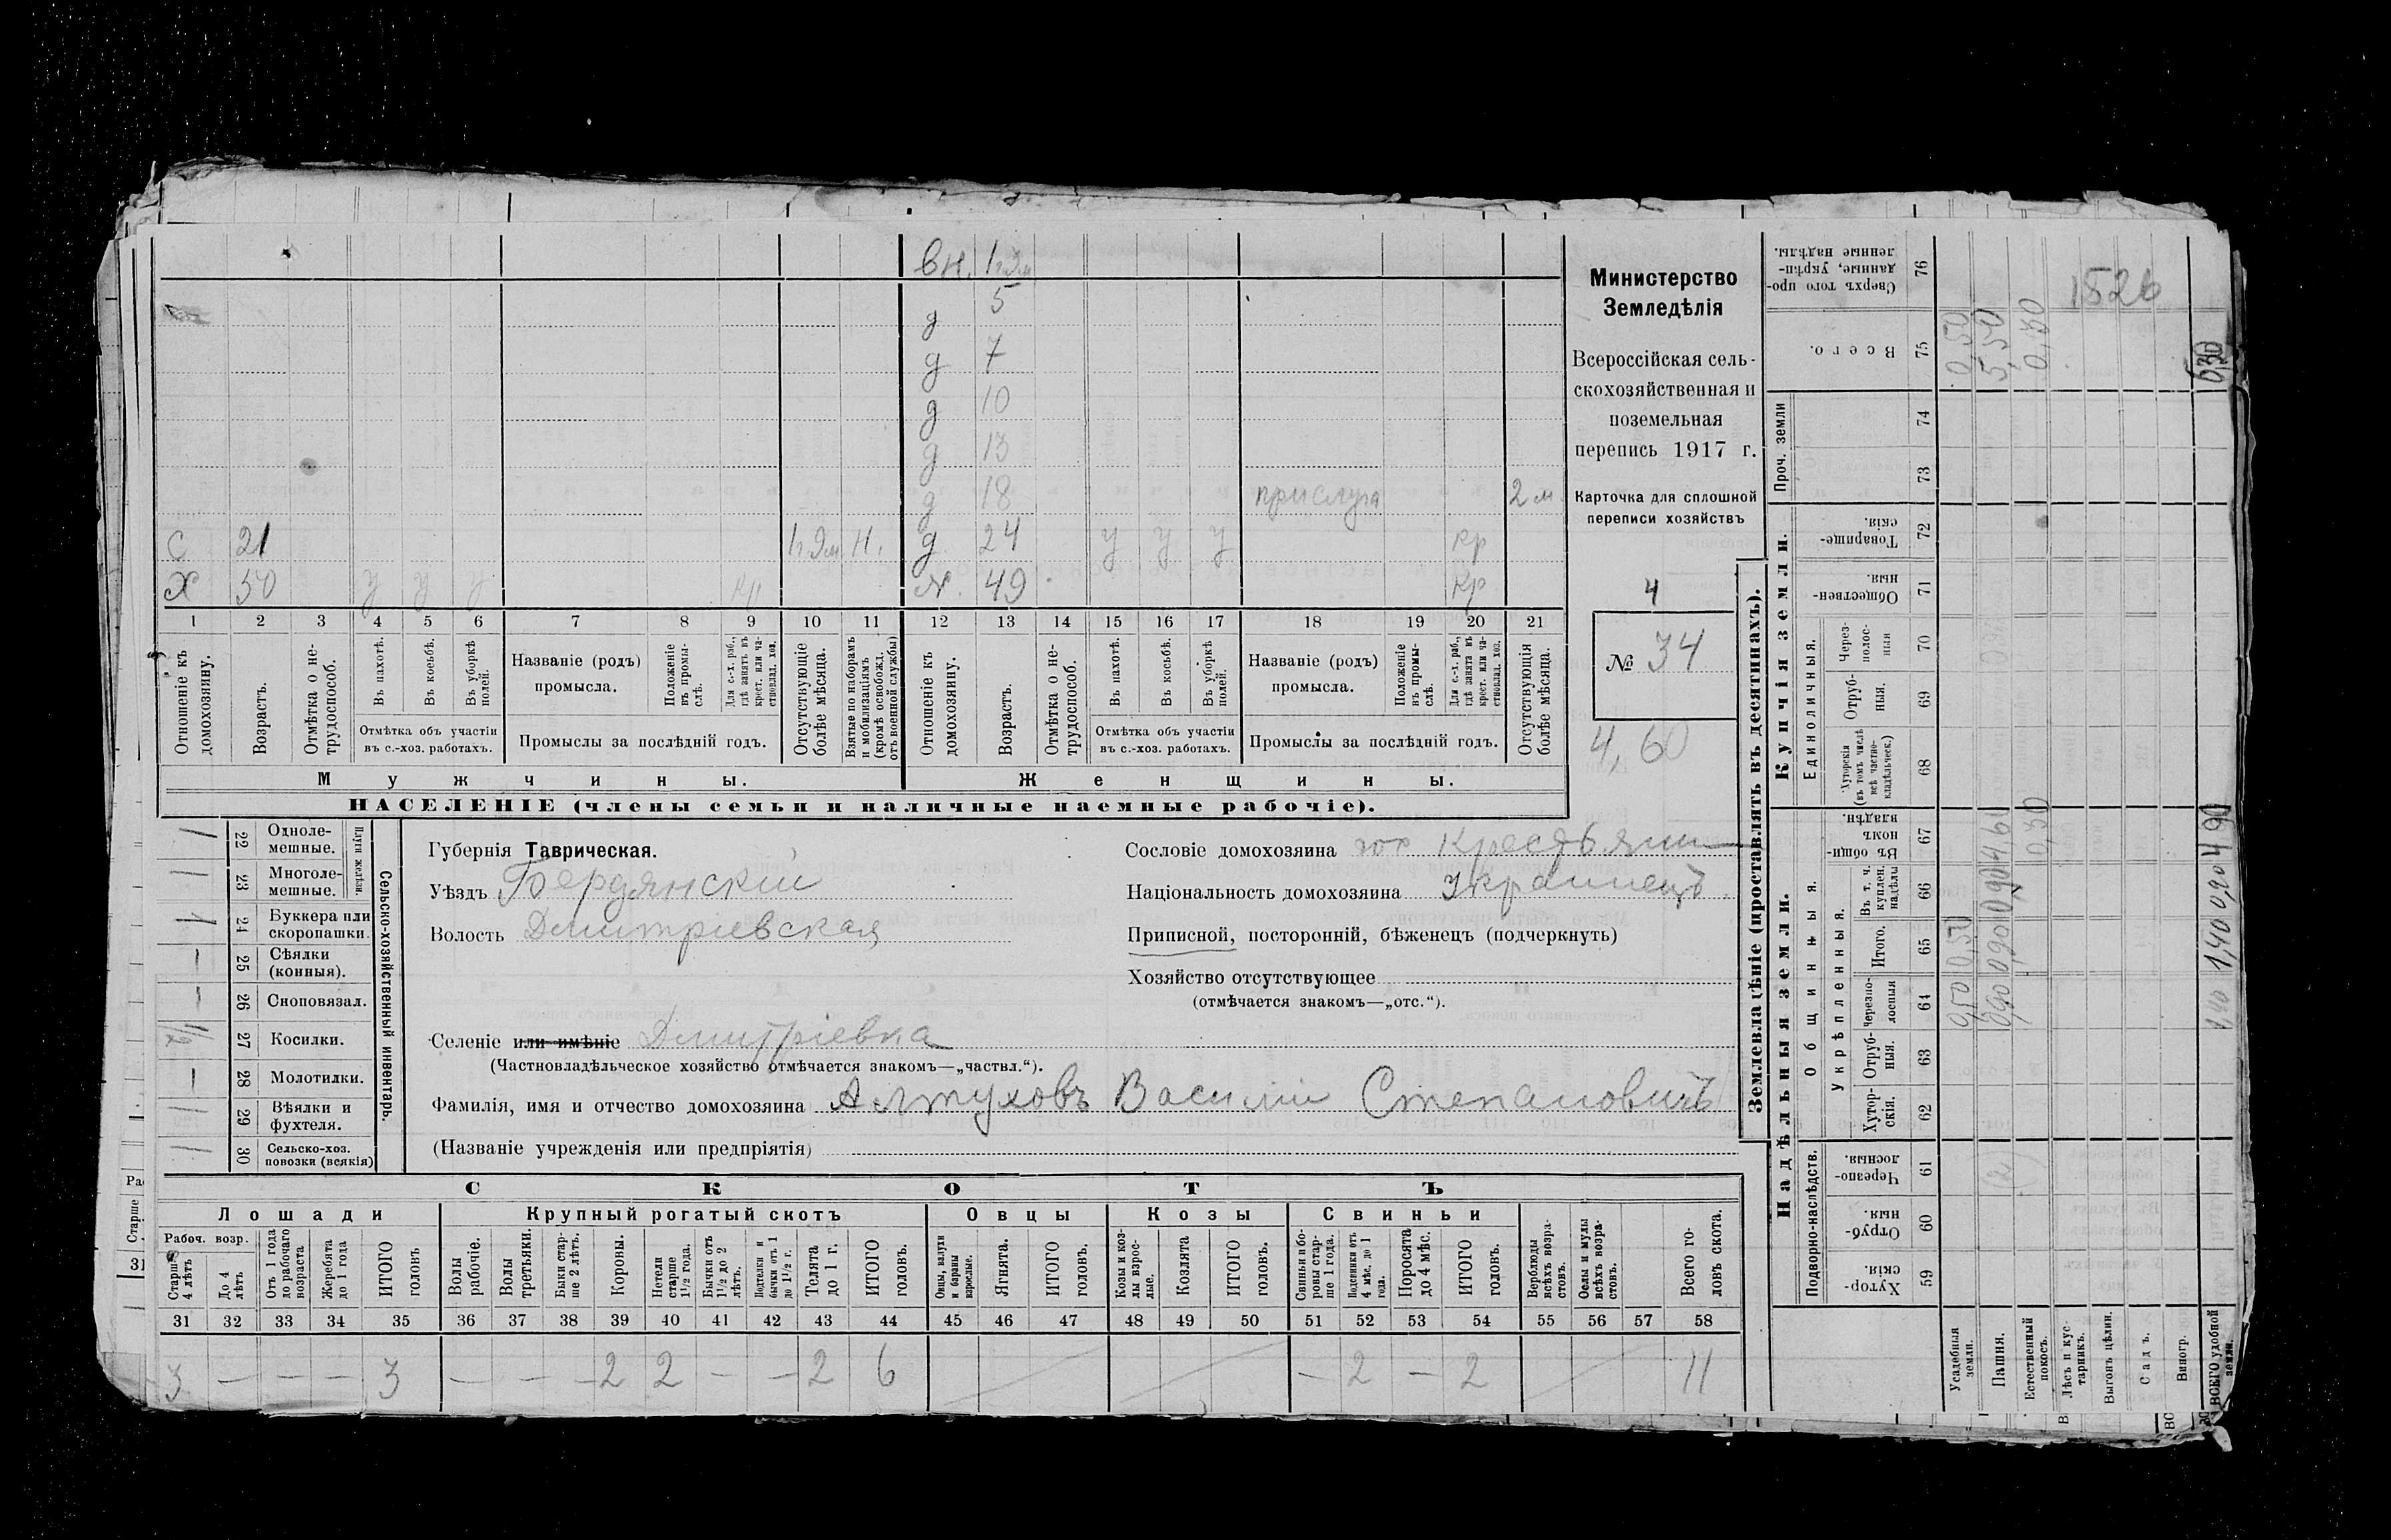 вн. 1 г. 9 м
д 5
д 7
д 10
д 13
д 18 прислуга 2 м.
с 21 1 г. 9 м н. д 24 у у у кр
х 50 у у у кр ж. 49 кр
1 2 3 4 5 6 7 8 9 10 11 12 13 14 15 16 17 18 19 20 21
Отношеніе къ домохозяину.
Возрастъ.
Отмѣтка о не-трудоспособ.
Въ пахотѣ.
Въ косьбѣ.
Въ уборкѣ полей.
Отмѣтка объ участіи
въ с.-хоз. работахъ.
Названіе (родъ)
промысла.
Положеніе въ промы-слѣ.
Для с.-х. раб., гдѣ занятъ въ крест. или ча-стновлад. хоз.
Промыслы за послѣдній годъ.
Отсутствующіе болѣе мѣсяца.
Взятые по наборамъ и мобилизаціямъ (кромѣ освобожд. отъ военной службы)
Отношеніе къ домохозяину.
Возрастъ.
Отмѣтка о не-трудоспособ.
Въ пахотѣ.
Въ косьбѣ.
Въ уборкѣ полей.
Отмѣтка объ участіи
въ с.-хоз. работахъ.
Названіе (родъ)
промысла.
Положеніе въ промы-слѣ.
Для с.-х. раб., гдѣ занята въ крест. или ча-стновлад. хоз.
Промыслы за послѣдній годъ.
Отсутствующія болѣе мѣсяца.
Мужчины.
Женщины.
НАСЕЛЕНІЕ (члены семьи и наличные наемные рабочіе).
Министерство
Земледѣлія
Всероссійская сель-
скохозяйственная и
поземельная
перепись 1917 г.
Карточка для сплошной
переписи хозяйствъ
4
№ 34
4,60
1 22 Одноле-мешные.
1 23 Многоле-мешные.
Плуги желѣзн
1 24 Буккера или скоропашки.
— 25 Сѣялки (конныя).
— 26 Сноповязал.
1/2 27 Косилки.
— 28 Молотилки.
1 29 Вѣялки и фухтеля.
1 30 Сельско-хоз. повозки (всякія)
Сельско-хозяйственный инвентарь.
Губернія Таврическая.
Уѣздъ Бердянскій
Волость Дмитріевская
Селеніе или имѣніе Дмитріевка
(Частновладѣльческое хозяйство отмѣчается знакомъ—„частвл.“).
Фамилія, имя и отчество домохозяина Алтуховъ Василій Степановичъ
(Названіе учрежденія или предпріятія)
Сословіе домохозяина Крестьянин
Національность домохозяина Украинецъ
Приписной, посторонній, бѣженецъ (подчеркнуть)
Хозяйство отсутствующее
(отмѣчается знакомъ—„отс.“).
СКОТЪ
Лошади
Крупный рогатый скотъ
Овцы
Козы
Свиньи
Рабоч. возр.
Старше 4 лѣтъ
До 4 лѣтъ
Отъ 1 года до рабочаго возраста
Жеребята до 1 года
ИТОГО головъ
Волы рабочіе.
Волы третьяки.
Быки стар-ше 2 лѣтъ.
Коровы.
Нетели старше 1 1/2 года.
Бычки отъ 1 1/2 до 2 лѣтъ.
Подтелки и бычки отъ 1 до 1 1/2 г.
Телята до 1 г.
ИТОГО головъ.
Овцы, валухи и бараны взрослые.
Ягнята.
ИТОГО головъ.
Козы и коз-лы взрос-лые.
Козлята
ИТОГО головъ.
Свиньи и бо-ровы стар-ше 1 года.
Подсвинки отъ 4 мѣс. до 1 года.
Поросята до 4 мѣс.
ИТОГО головъ.
Верблюды всѣхъ возра-стовъ.
Ослы и мулы всѣхъ возра-стовъ.
Всего го-ловъ скота.
31 32 33 34 35 36 37 38 39 40 41 42 43 44 45 46 47 48 49 50 51 52 53 54 55 56 57 58
3 — — — 3 — — — 2 2 — — 2 6 — 2 — 2 11
Землевладѣніе (проставлять въ десятинахъ).
Купчія земли.
Надѣльныя земли.
Сверхъ того про-данные, укрѣп-ленные надѣлы. 76
Всего. 75
Проч. земли
74
73
Товарище-скія. 72
Обществен-ныя. 71
Единоличныя.
Через-полос-ныя 70
Отруб-ныя. 69
Хуторскія (въ томъ числѣ всѣ частно-владѣльческ.) 68
Общинныя.
Въ общин-номъ владѣн. 67
Укрѣпленныя.
Въ т. ч. куплен. надѣлы 66
Итого. 65
Черезпо-лосныя 64
Отруб-ныя. 63
Хутор-скія. 62
Подворно-наслѣдств.
Черезпо-лосныя. 61
Отруб-ныя. 60
Хутор-скія. 59
Усадебныя земли.
Пашня.
Естественный покосъ.
Лѣсъ и кус-тарникъ.
Выгонъ цѣлин.
Садъ.
Виногр.
ВСЕГО удобной земли.
1526
0,50
5,50
0,30
6,30
0,50 0,50
0,90 0,90 0,90 4,60
0,30
1,40 1,40 0,90 4,90